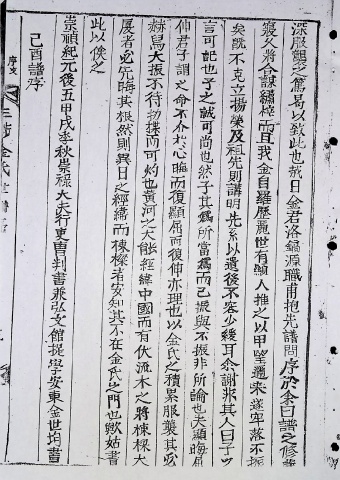 深服觀之篤曷以致此也哉日金君洛鎬源職甫抱先譜問序於余曰譜之修
寢久將合謀繡梓而且我金自羅歷麗世有顯人推之以甲望邇來遂牢落不振
矣旣不克立揚榮及祖先則講明先系以遺後不容少緩耳余謝非其人曰子之
言可記也子之誠可尚也然子其爲所當爲而已振與不振非所論也夫顯晦屈
伸君子謂之命不介於心晦而復顯屈而復伸亦理也以金氏之積累服襲其必
赫舄大振不待揚揲而可灼也黃河之大能經緯中國而有伏流木之將棟樑大
厦者必先晦其根然則異日之經緯而棟樑者安知其不在金氏之門也歟姑書
此以俟之
崇禎紀元後 戊季秋崇祿大夫行吏曹判書兼弘文館提學安東金世均書
己酉譜序
序文
金氏